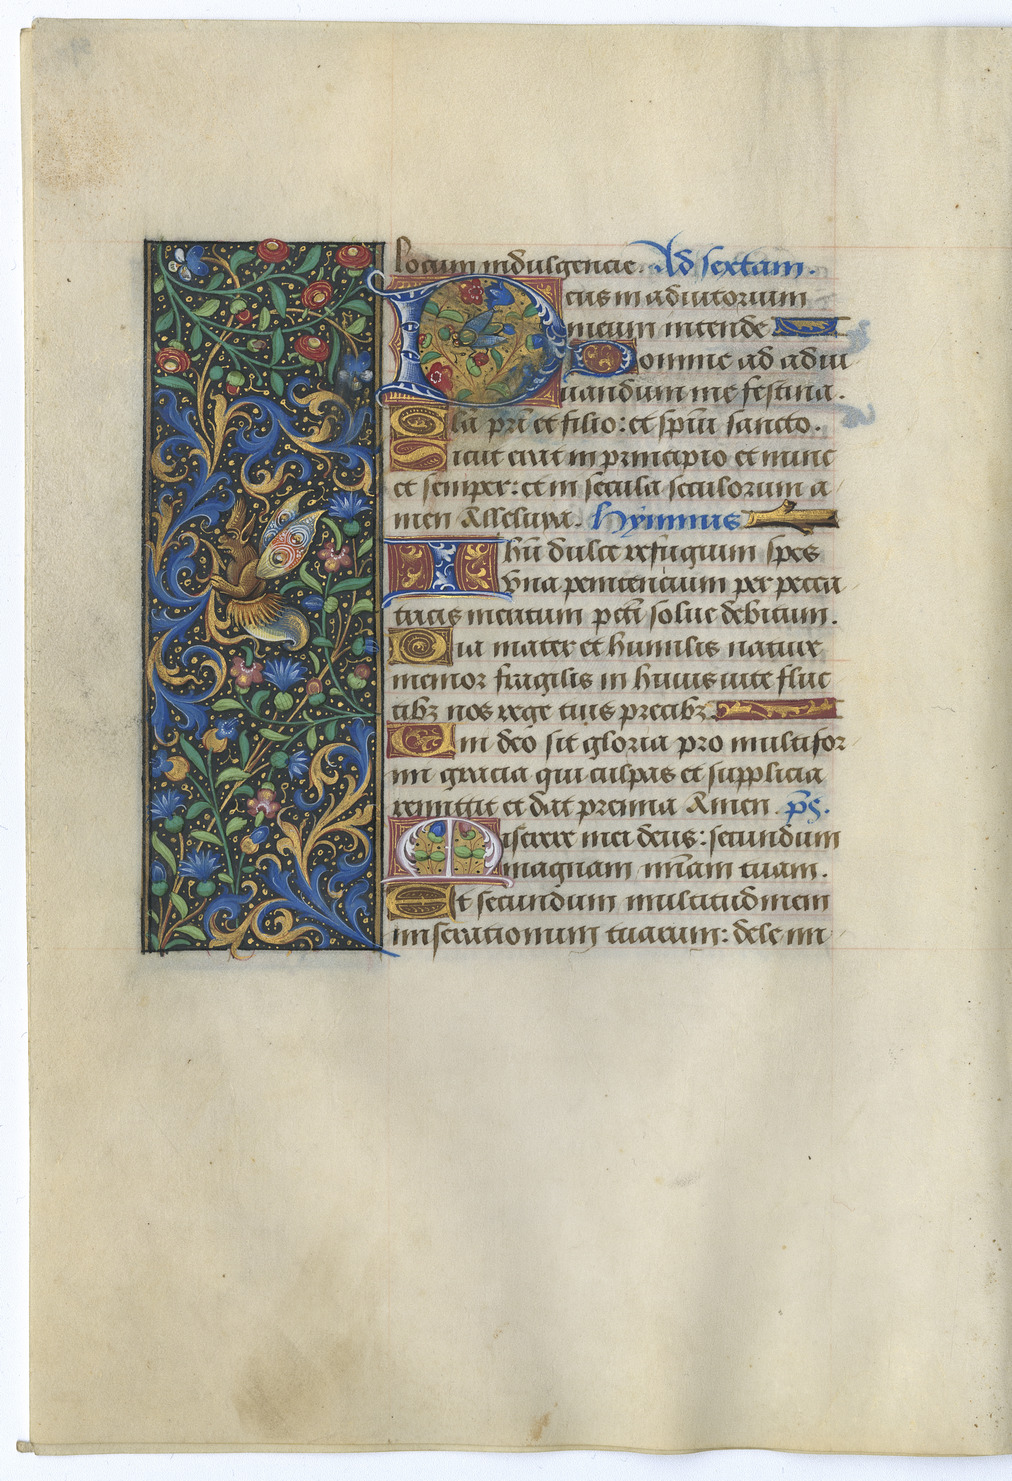 Locum indulgencie. Ad sextam.
Deus in adiutorium
meum intende
Domine ad adiu
uandum me festina.
Gl̃a pr̃i et filio: et spũi sancto.
Sicut erat in principio et nunc
et semper: et in secula seculorum a
men Alleluya. Hymnus
Ihũ dulce refugium spes
vna penitencium per pecca
tricis meritum pctĩ solue debitum.
Pia mater et humilis nature
memor fragilis in huius uite fluc
tibꝫ nos rege tuis precibꝫ.
Cui deo sit gloria pro multifor
mi gracia qui culpas et supplicia
remittit et dat premia Amen. p̃s.
Miserere mei deus: secundum
magnam mĩam tuam.
Et secundum multitudinem
miseracionum tuarum: dele im